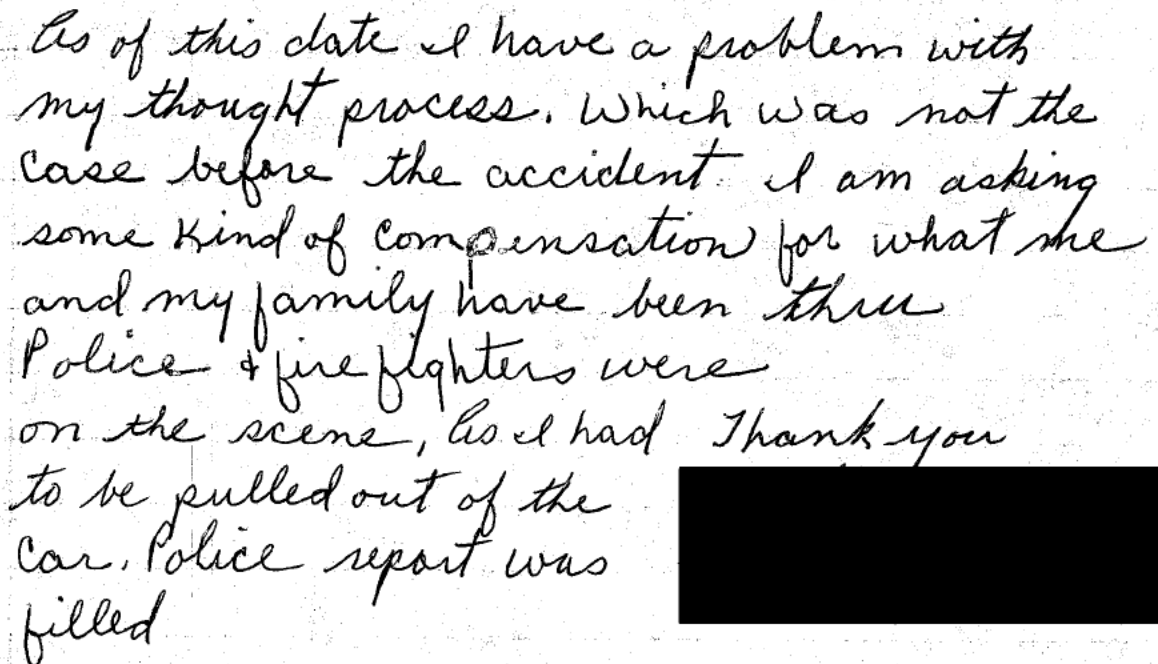 As of this date I have a problem with
my thought process. Which was not the
case before the accident. I am asking
some kind of compensation for what me
and my family have been thru
Police & fire fighters were
on the scene, As I had
to be pulled out of the
car. Police report was
filled
Thank you